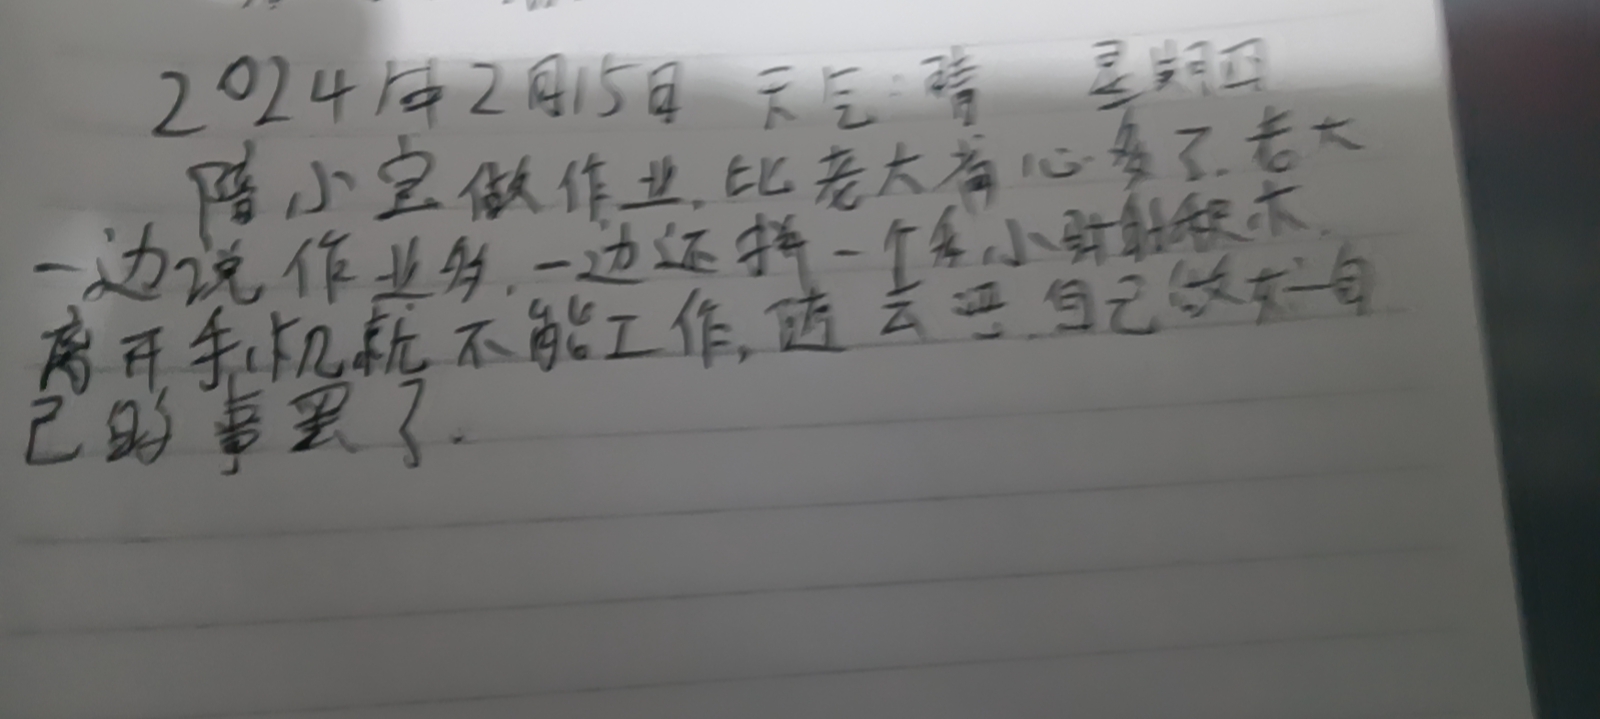 2024年2月15日 天气:晴 星期四
陪小宝做作业,比老大省心多了.老大
一边说作业多,一边还拼一个多小时积木,
离开手机就不能工作,随去吧.自己做好自
己的事罢了.